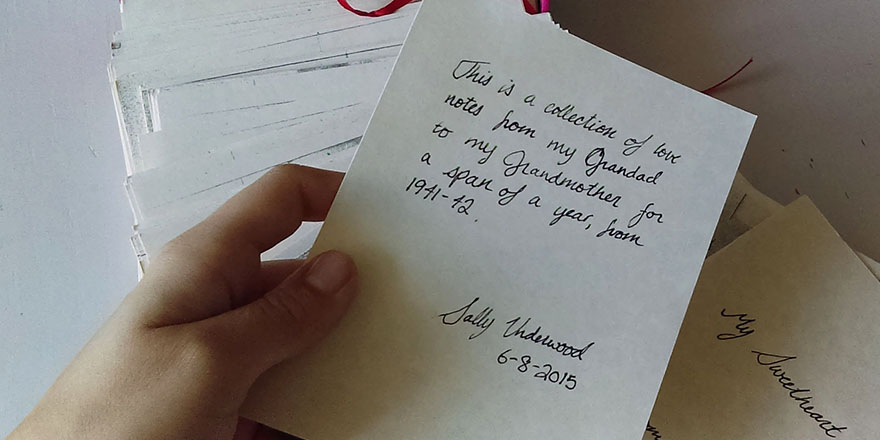 This is a collection of love
notes from my Grandad
to my Grandmother for
a span of a year, from
1941-42.
Sally Underwood
6-8-2015
My Sweetheart